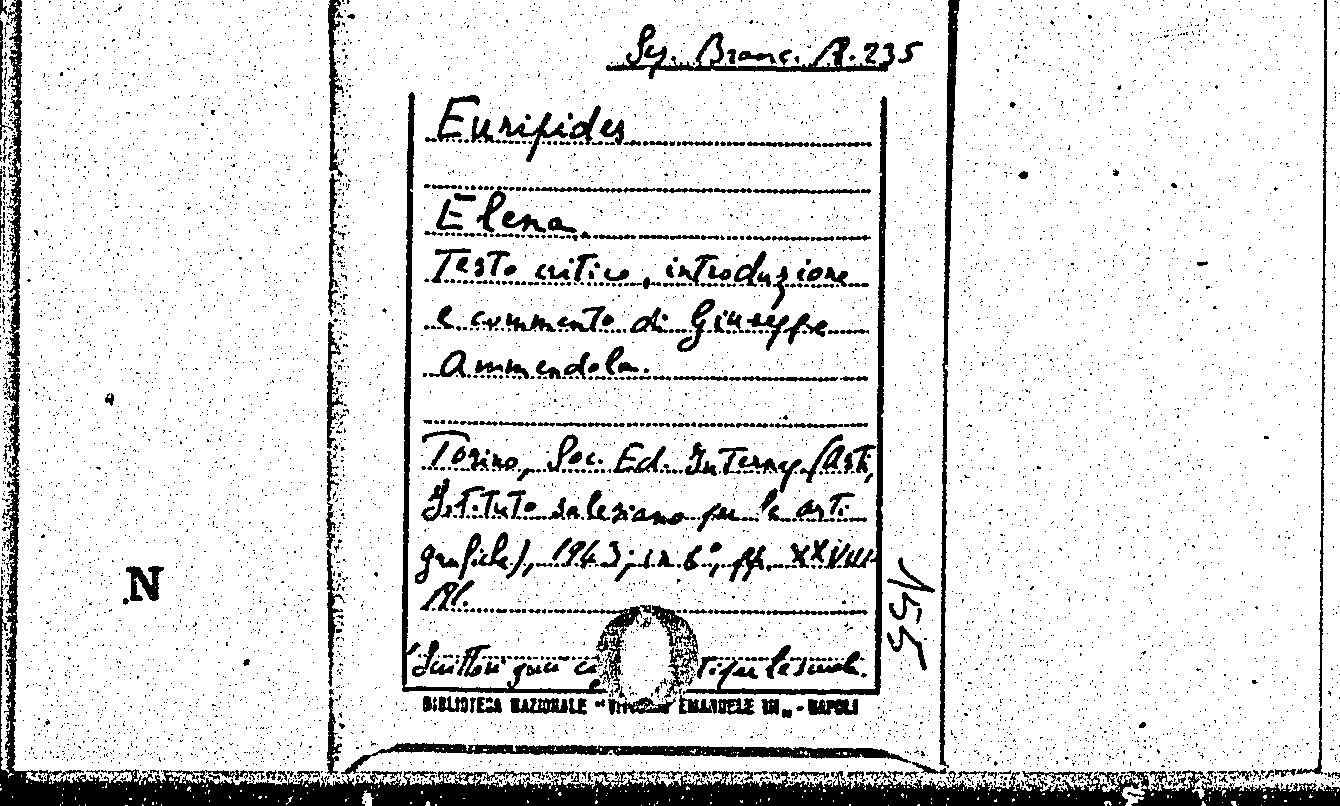 Sez. Branc. A. 235
Euripides
Elena.
Testo critico, introduzione
e commento di Giuseppe
Ammendola.
Torino, Soc. Ed. Internaz. (Asti,
Istituto salesiano per le arti
grafiche), 1943; in 8°, pp. XXVIII
Scrittori greci ti per le scuole.
BIBLIOTECA NAZIONALE "VITTORIO EMANUELE III" - NAPOLI
N